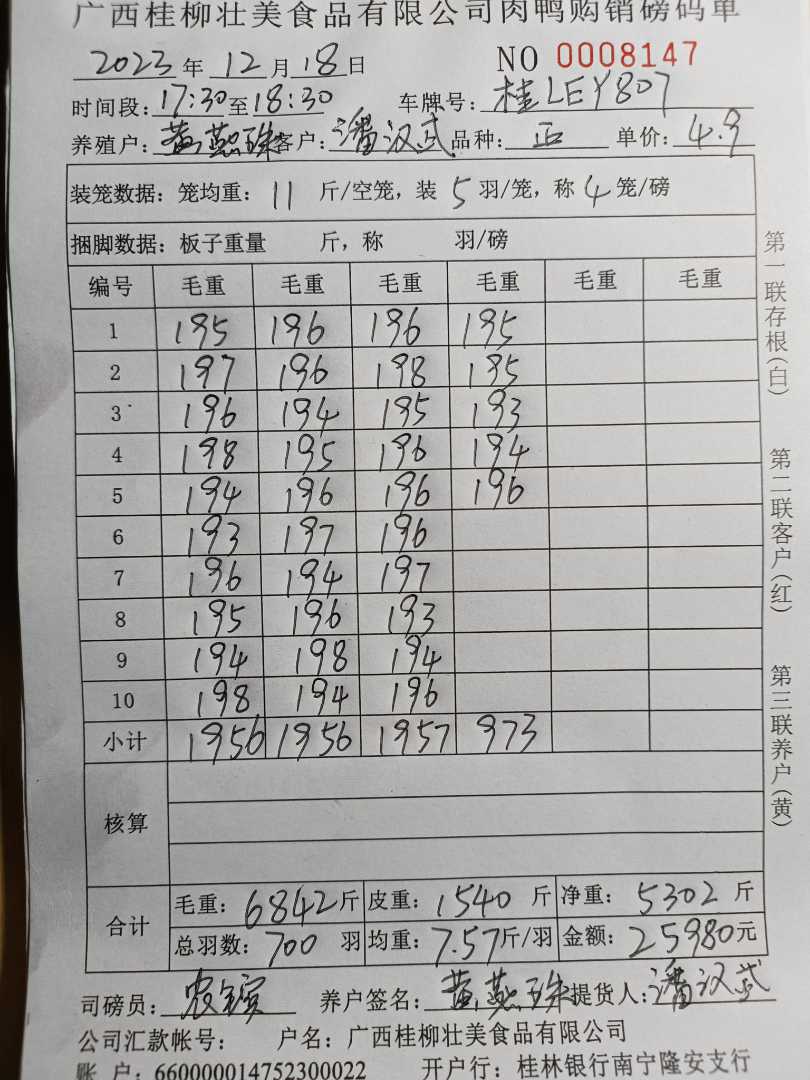 广西桂柳壮美食品有限公司肉鸭购销磅码单
2023年12月18日 NO 0008147
时间段:17:30至18:30 车牌号:桂LEY807
养殖户:黄燕珠 客户:潘汉武 品种:正 单价:4.9
装笼数据:笼均重:11斤/空笼,装5羽/笼,称4笼/磅
捆脚数据:板子重量 斤,称 羽/磅
编号 毛重 毛重 毛重 毛重 毛重 毛重
1 195 196 196 195
2 197 196 198 195
3 196 194 195 193
4 198 195 196 194
5 194 196 196 196
6 193 197 196
7 196 194 197
8 195 196 193
9 194 198 194
10 198 194 196
小计 1956 1956 1957 973
核算
合计 毛重:6842斤 皮重:1540斤 净重:5302斤
总羽数:700羽 均重:7.57斤/羽 金额:25980元
司磅员: 养户签名:黄燕珠 提货人:潘汉武
公司汇款帐号: 户名:广西桂柳壮美食品有限公司
账户:660000014752300022 开户行:桂林银行南宁隆安支行
第一联存根(白) 第二联客户(红) 第三联养户(黄)